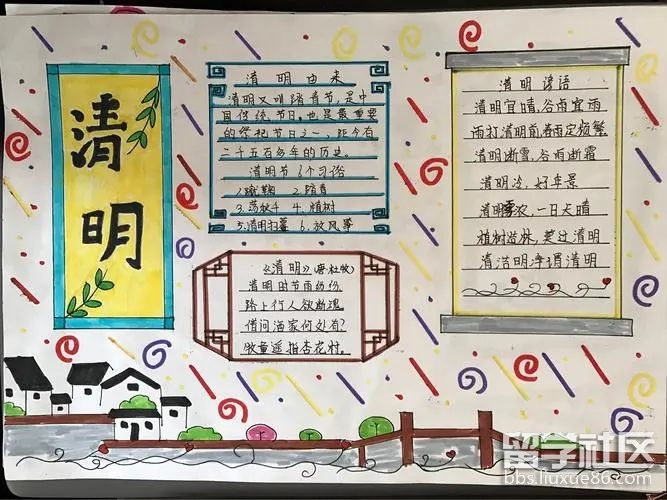 清明
清明由来
清明又叫踏青节,是中
国传统节日,也是最重要
的祭祀节日之一,距今有
二千五百多年的历史。
清明节6个习俗
1.蹴鞠 2.踏青
3.荡秋千 4.植树
5.清明扫墓 6.放风筝
《清明》(唐 杜牧)
清明时节雨纷纷
路上行人欲断魂
借问酒家何处有?
牧童遥指杏花村。
清明谚语
清明宜晴,谷雨宜雨
雨打清明前,春雨定频繁
清明断雪,谷雨断霜
清明冷,好年景
清明雾浓,一日天晴
植树造林,莫过清明
留学社区
bbs.liuxue86.com